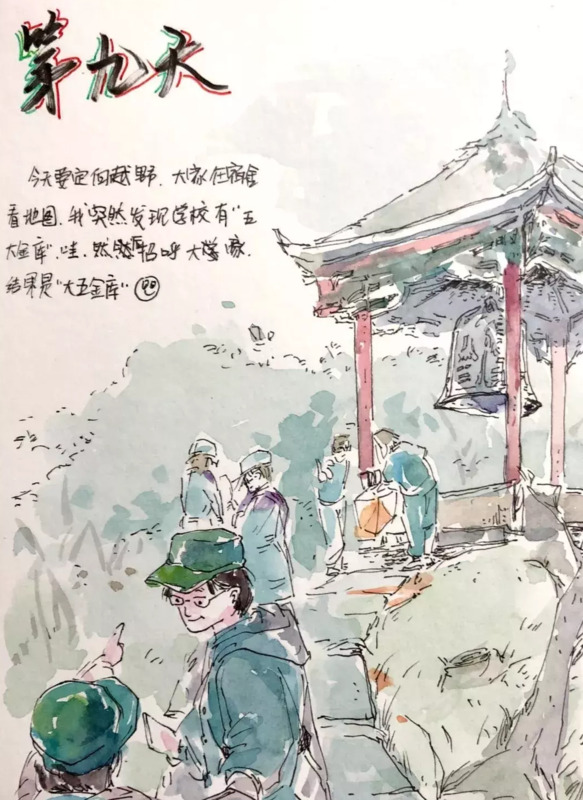 第九天
今天要定向越野. 大家在宿舍
看地图. 我突然发现学校有"五
大金库" 哇. 然后招呼大家
结果是"大五金库"